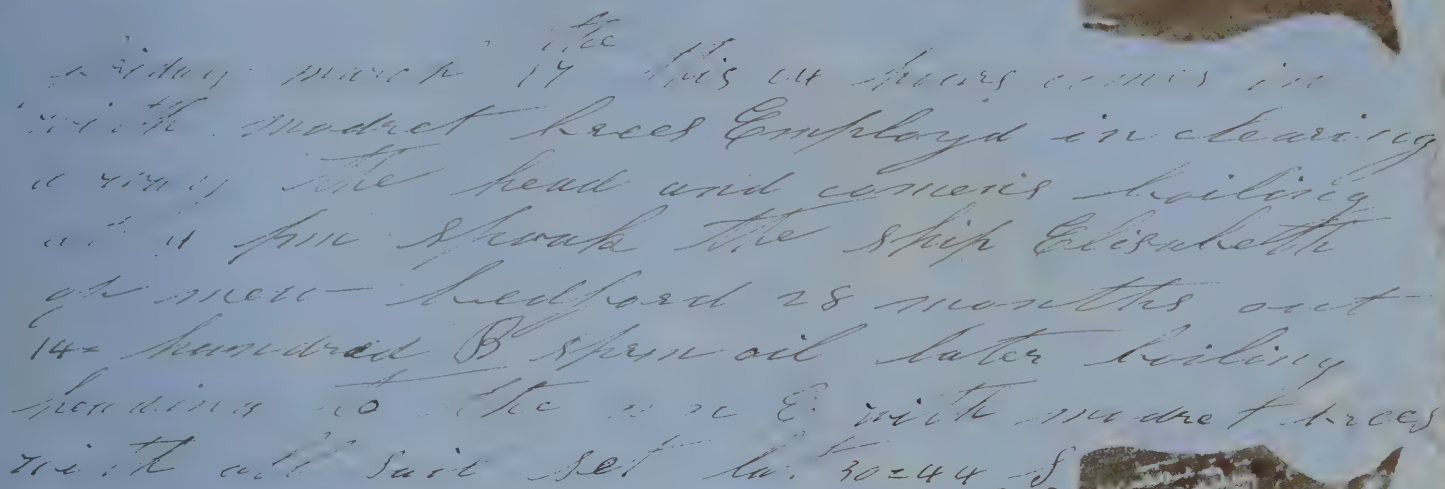 Friday march 17 the this 24 hours comes in
with modret brees Employd in clearing
away the head and comens boiling
at 4 pm spoak the ship Elisabeth
of new bedford 28 months out
14= hundred B sperm oil later boiling
heading to the n E with modret brees
with all sail set lat 30=44 S